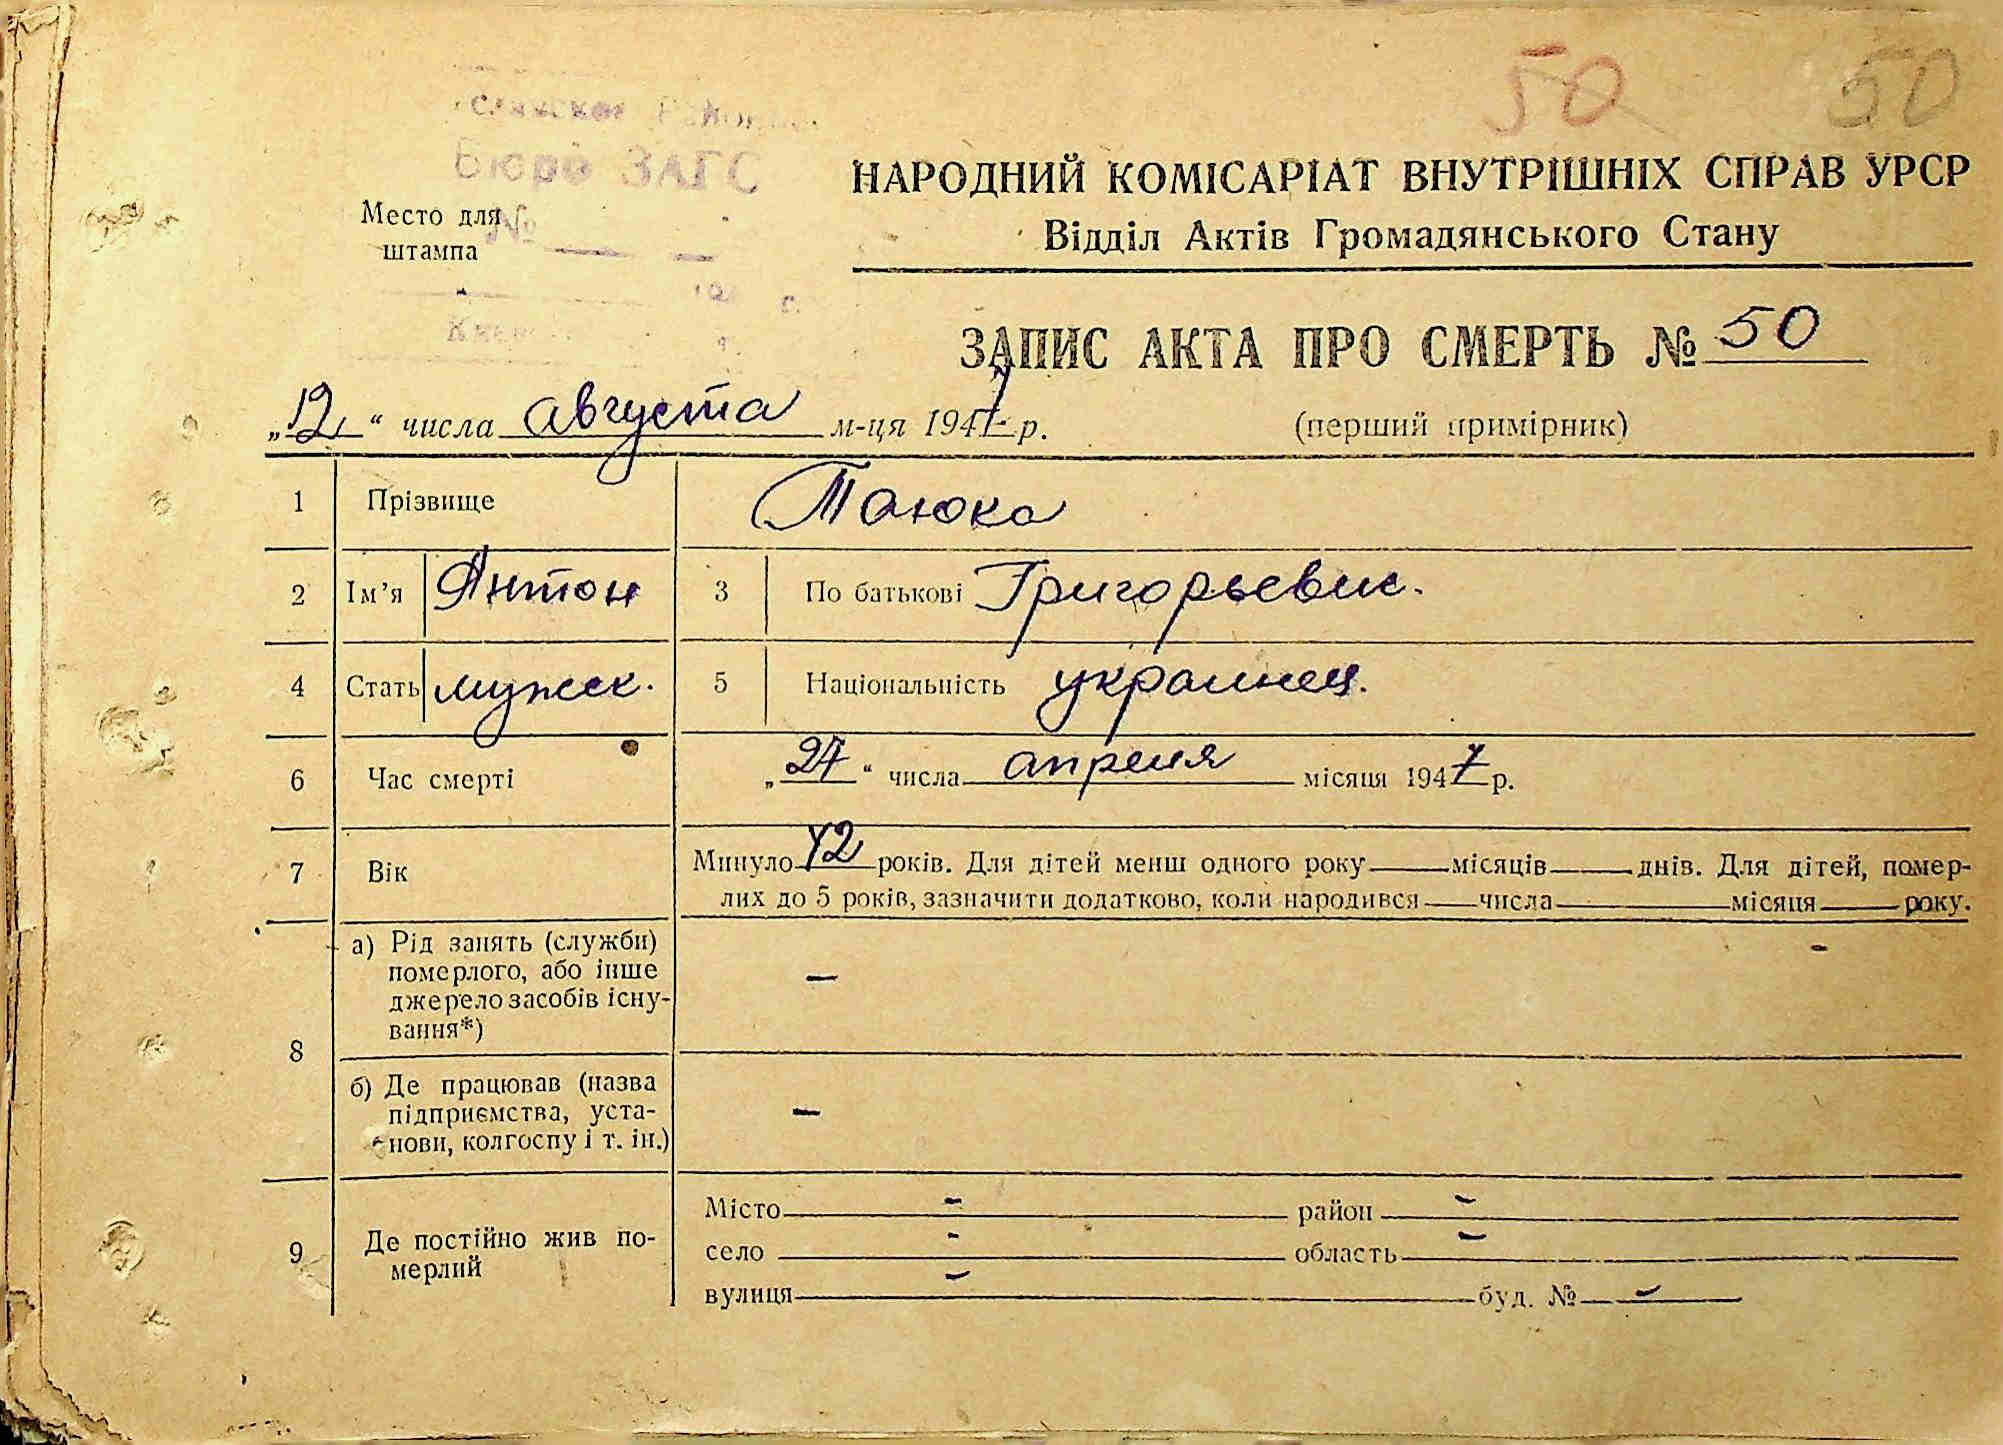 50 50
Бюро ЗАГС
№
НАРОДНИЙ КОМІСАРІАТ ВНУТРІШНІХ СПРАВ УРСР
Место для
штампа
Відділ Актів Громадянського Стану
ЗАПИС АКТА ПРО СМЕРТЬ № 50
„12“ числа августа м-ця 1947 р. (перший примірник)
1 Прізвище Таюка
2 Ім’я Антон 3 По батькові Григорьевич.
4 Стать мужск. 5 Національність украинец.
6 Час смерті „27“ числа апреля місяця 1947 р.
7 Вік Минуло 42 років. Для дітей менш одного року — місяців — днів. Для дітей, помер-
лих до 5 років, зазначити додатково, коли народився — числа — місяця — року.
8 а) Рід занять (служби)
померлого, або інше
джерело засобів існу-
вання*) –
б) Де працював (назва
підприємства, уста-
нови, колгоспу і т. ін.) –
9 Де постійно жив по-
мерлий
Місто - район -
село - область -
вулиця - буд. № -